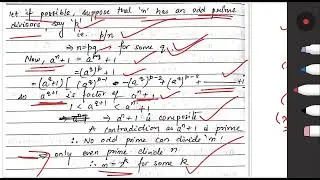 let if possible, suppose that 'n' has an odd prime
divisors, say 'p'
i.e. p/n
⇒ n=pq for some q
Now, aⁿ+1 = a^pq+1
= (a^q)^p+1
= (a^q+1) [(a^q)^p-1 - (a^q)^p-2 + (a^q)^p-3 ... +1]
As a^q+1 is factor of aⁿ+1
1 < a^q+1 < aⁿ+1
⇒ aⁿ+1 is composite
A contradiction as aⁿ+1 is prime
∴ No odd prime can divide 'n'.
⇒ only even prime divide n
∴ for some k